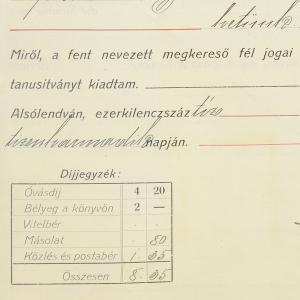 hetünk.
Miről, a fent nevezett megkereső fél jogai
tanusitványt kiadtam.
Alsólendván, ezerkilencszáz tíz
tizenharmadik napján.
Díjjegyzék:
Óvásdíj 4 20
Bélyeg a könyvön 2 —
Vitelbér . .
Másolat . 80
Közlés és postabér 1 35
Összesen 8 35